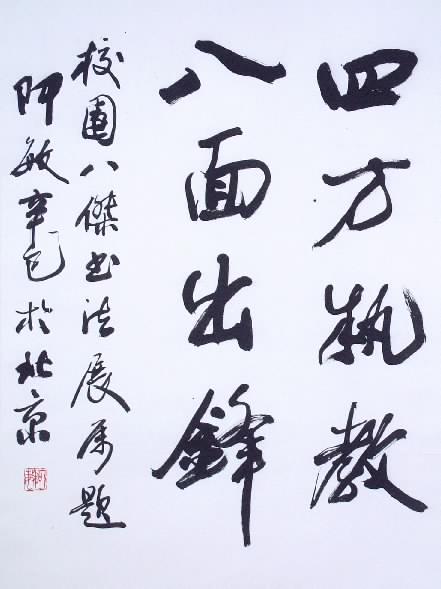 四方执教
八面出鋒
校園八傑書法展属題
阿敏辛巳於北京